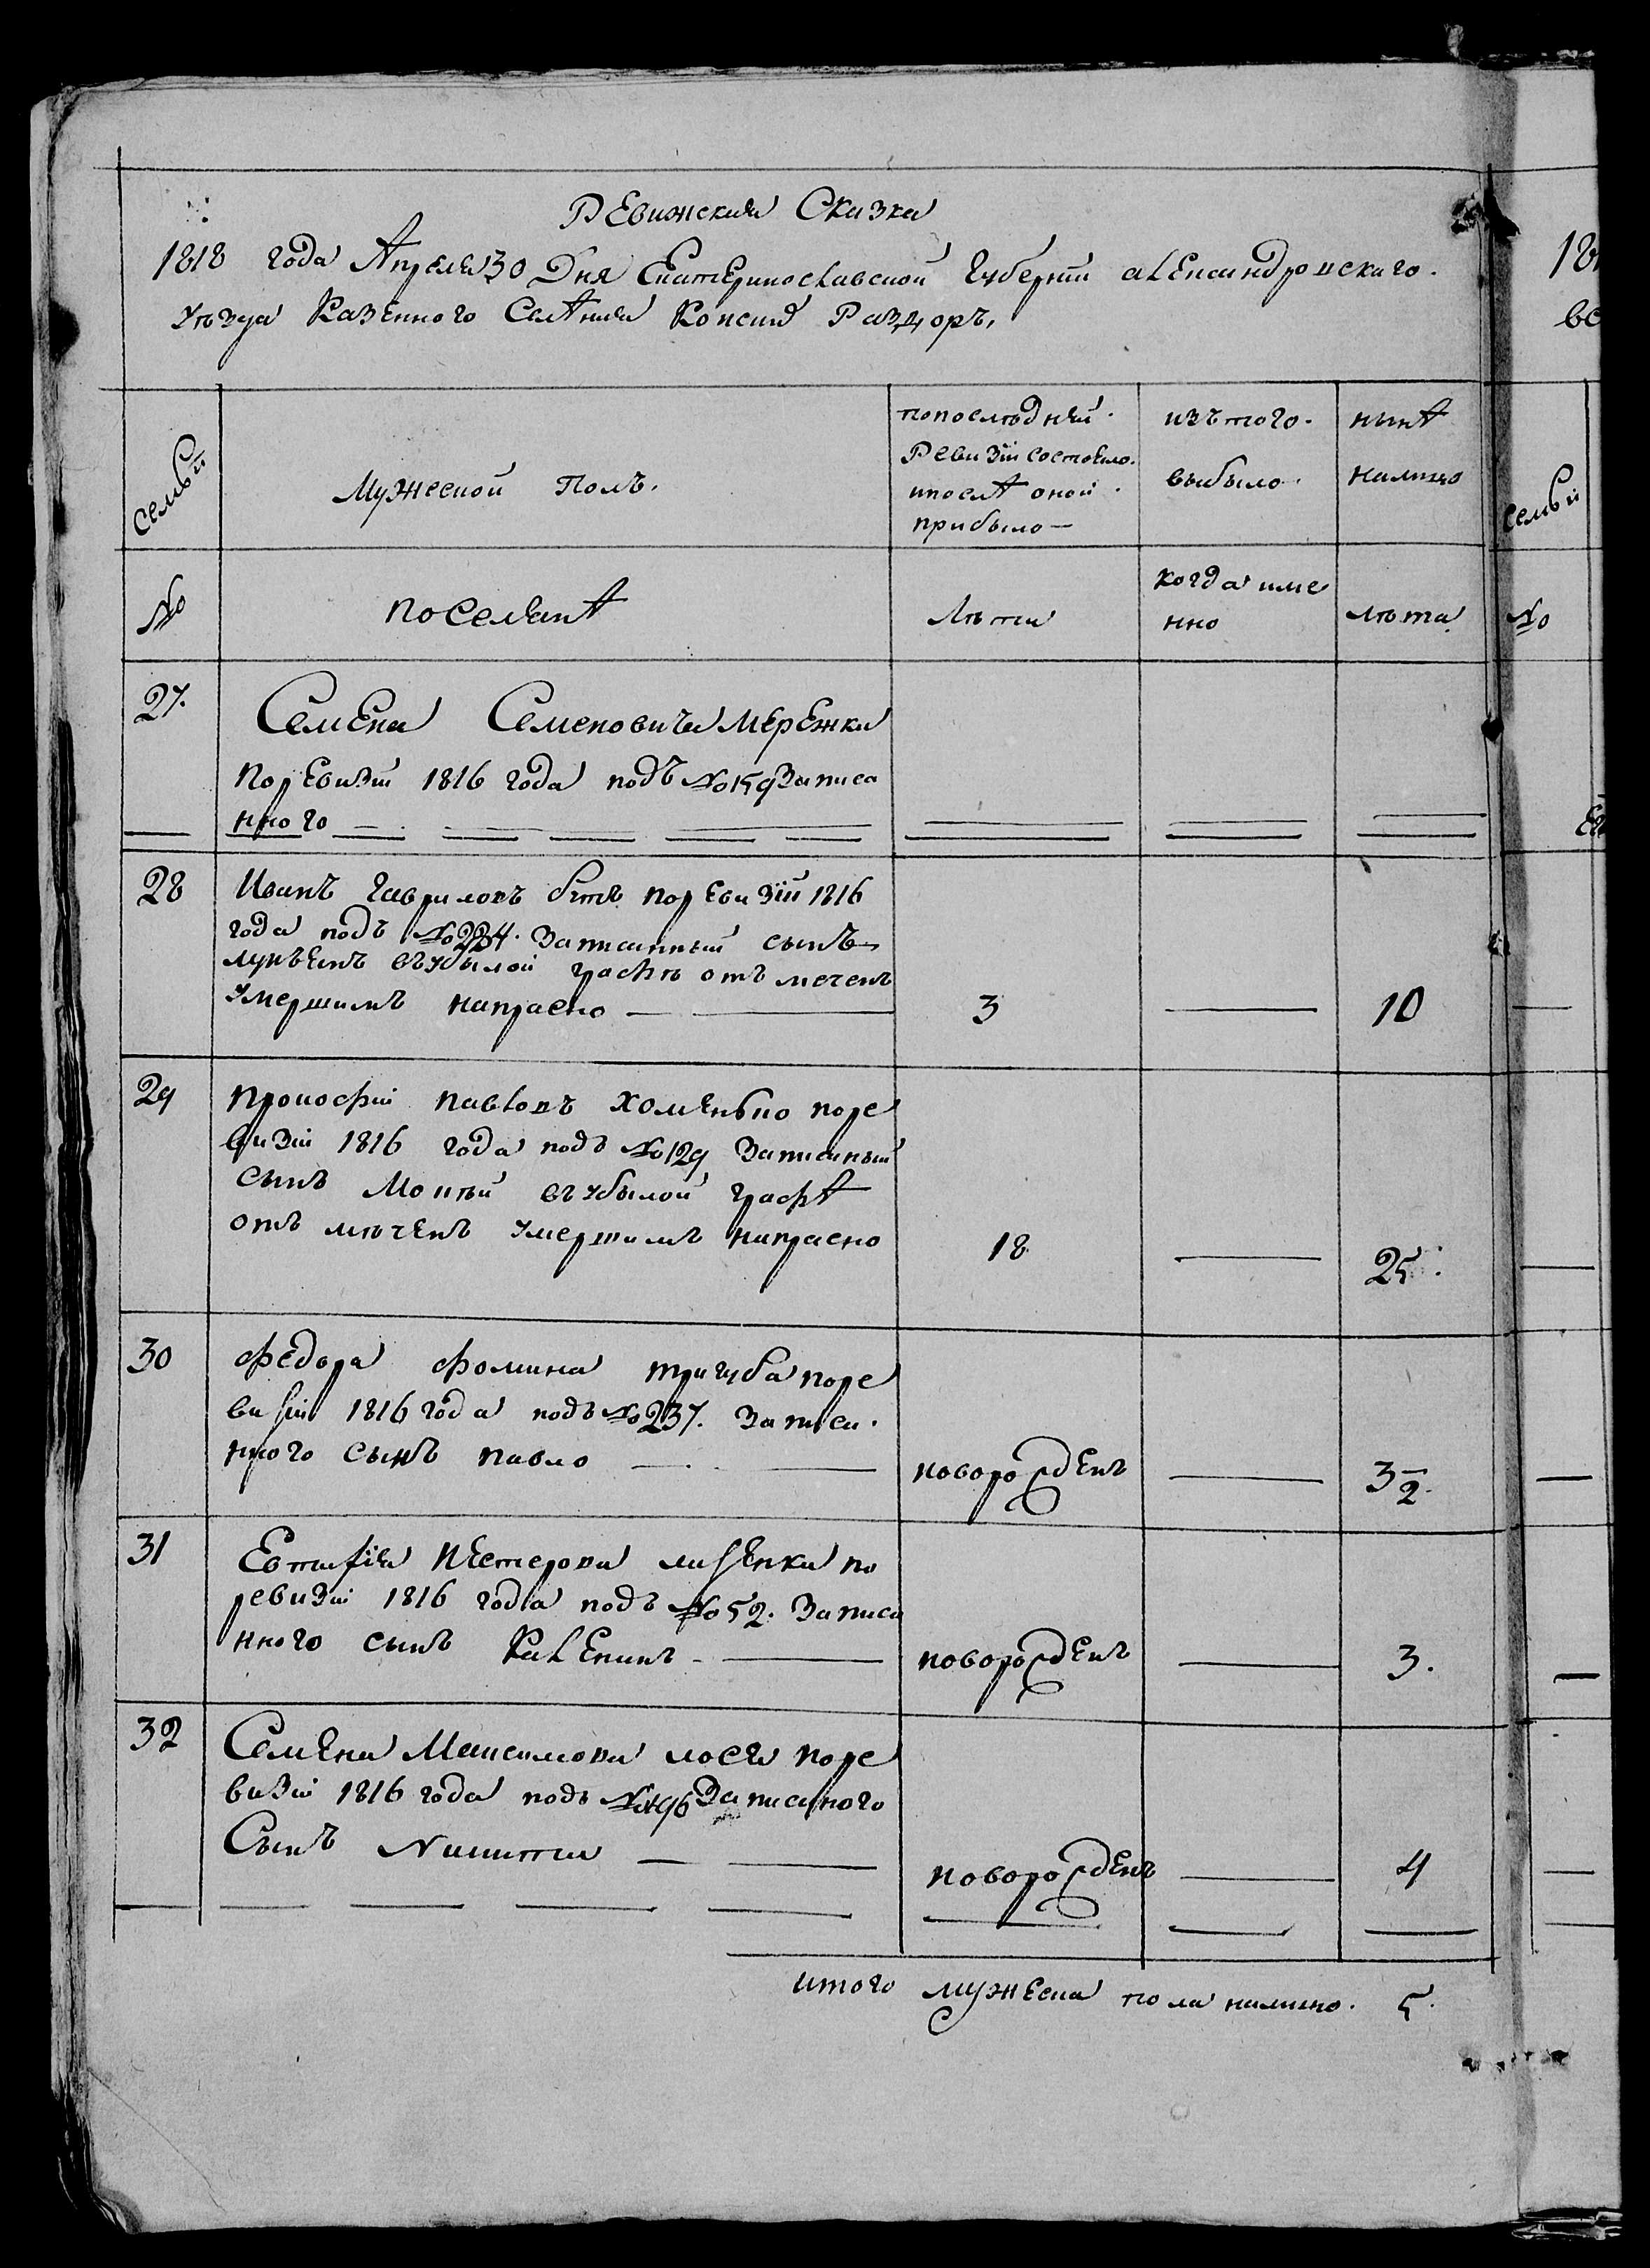 Ревижская Сказка
1818 года Апреля 30 Дня Екатеринославской Губернїи александровскаго.
уѣзда Казенного Селѣния Конских Раздоръ,
Семьи
Мужеской Полъ.
попослѣдней
Ревизїи состояло.
ипослѣ оной
прибыло —
изътого.
выбыло.
нынѣ
налицо
№
поселянѣ
Лѣта
когда име
нно
лѣта
27.
Семена Семеновича мережки
Поревизїи 1816 года подъ №159 Записа
нного
28
Иванъ гавриловъ поревизїи 1816
года подъ №224. Записанный сынъ
въубылой графѣ отъ мечепъ
умершимъ напрасно —
3
—
10
29
прокофїй павловъ хоменько поре
визїи 1816 года подъ №129 Записаный
сынъ Мокѣй въубылой графѣ
отъ мѣченъ умершимъ напрасно
18
—
25.
30
федора фомина тригуба поре
визїи 1816 года подъ №237. Записа.
нного сынъ павло —
новорожденъ
—
3 1/2.
31
Евтифїя нестерова лисенки по
ревизїи 1816 года подъ №52. Записа
нного сынъ Каленикъ —
новорожденъ
—
3.
32
Семена Максимова лося поре
визїи 1816 года подъ №196 Записаного
Сынъ Никита —
новорожденъ
—
4
итого мужеска пола налицо. 5.
181
вс
Семьи
№